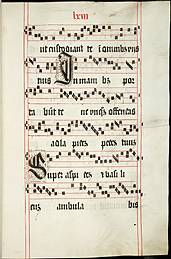 lxiii
ut custodiant te i omnibus viis
tuis In manib3 por
ta bunt te ne unq̃ offendas
ad la pides pedes tuus
Super aspi des et basili
cu3 ambula bis